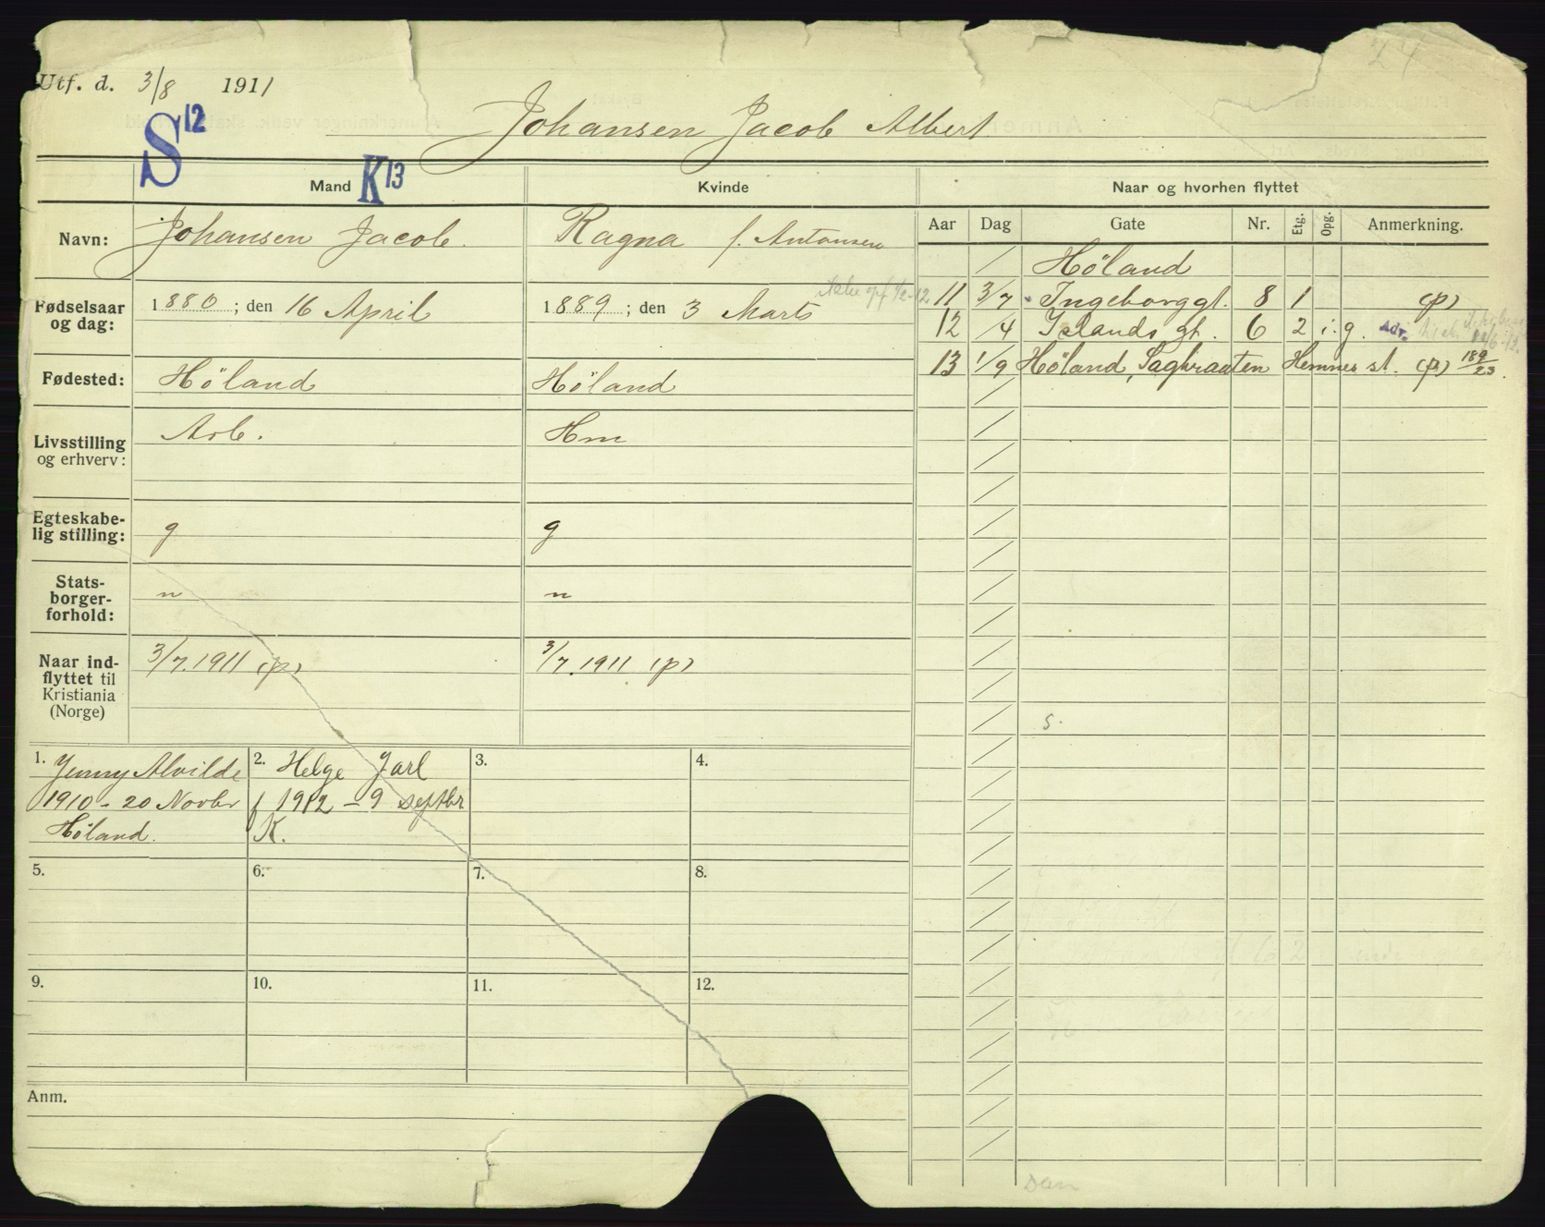 Utf. d. 3/8 1911
S 12
Johansen Jacob Albert
Mand K 13 Kvinde Naar og hvorhen flyttet
Navn: Johansen Jacob. Ragna f. Antonsen
Aar Dag Gate Nr. Etg. Opg. Anmerkning.
/ Høland
Fødselsaar og dag: 1880; den 16 April 1889; den 3 Marts
11 3/7 Ingeborggt. 8 1 (p)
12 /4 Islands gt. 6 2 i. g. Adr.
13 1/9 Høland, Sagbraaten Hemnes st. (p) 189/23.
Fødested: Høland Høland
Livsstilling og erhverv: Arb. Hm
Egteskabe-
lig stilling: g g
Stats-
borger-
forhold: n n
Naar ind-
flyttet til
Kristiania
(Norge) 3/7. 1911 (p) 3/7. 1911 (p)
s.
1. Jenny Alvilde
1910 - 20 Novbr
Høland.
2. Helge Jarl
f 1912 - 9 septbr
K.
3.
4.
5.
6.
7.
8.
9.
10.
11.
12.
Anm.